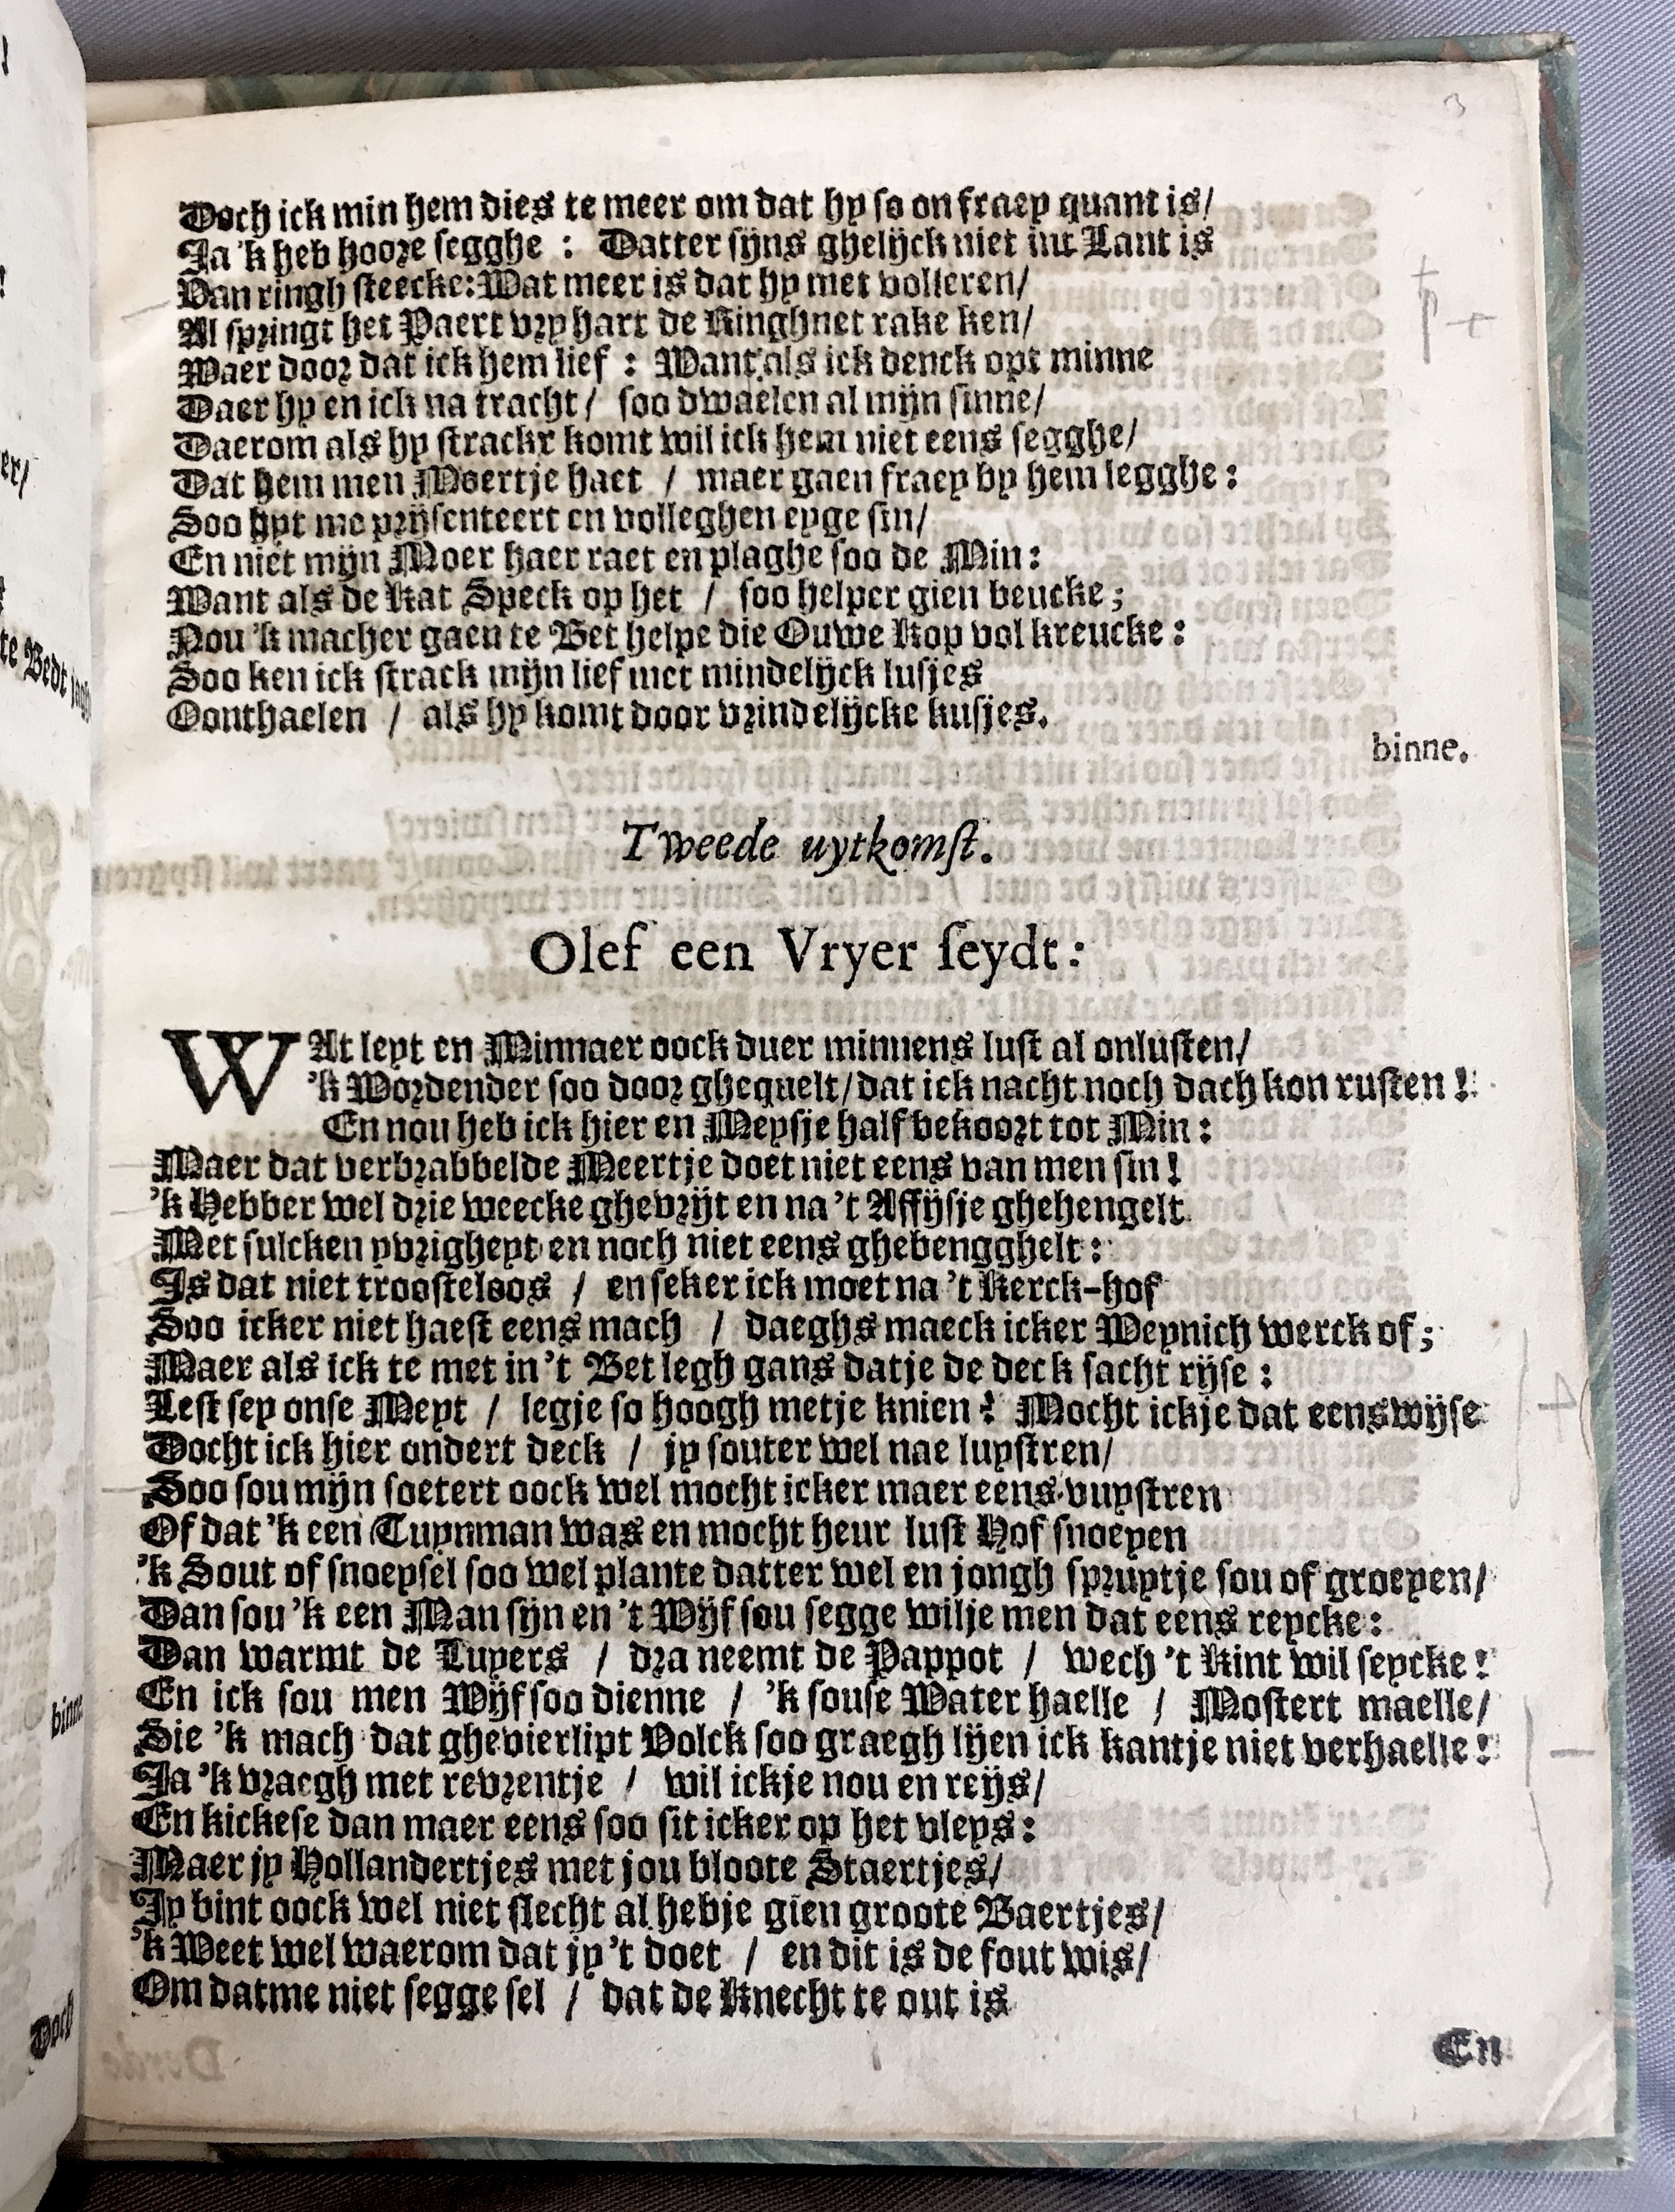 3
Doch ick min hem dies te meer om dat hy so on fraey quant is/
Ja 'k heb hoore segghe : Datter sijns ghelijck niet int Lant is
Van ringh steecke: Wat meer is dat hy met volleren/
Al springt het Paert vry hart de Ringh net rake ken/
Waer door dat ick hem lief : Want als ick denck opt minne
Daer hy en ick na tracht / soo dwaelen al mijn sinne/
Daerom als hy strackx komt wil ick hem niet eens segghe/
Dat hem men Moertje haet / maer gaen fraey by hem legghe :
Soo hyt me prijsenteert en volleghen eyge sin/
En niet mijn Moer haer raet en plaghe soo de Min :
Want als de Kat Speck op het / soo helper gien beucke ;
Nou 'k macher gaen te Bet helpe die Ouwe Kop vol kreucke :
Soo ken ick strack mijn lief met mindelijck lusjes
Oonthaelen / als hy komt door vrindelijcke kusjes.
binne.
Tweede uytkomst.
Olef een Vryer seydt:
WAt leyt en Minnaer oock duer minnens lust al onlusten/
'k Wordender soo door ghequelt/ dat ick nacht noch dach kon rusten !
En nou heb ick hier en Meysje half bekoort tot Min :
Maer dat verbrabbelde Meertje doet niet eens van men sin !
'k Hebber wel drie weecke ghevrijt en na 't Affijsje ghehengelt
Met sulcken yvrigheyt en noch niet eens ghebengghelt :
Is dat niet troosteloos / en seker ick moet na 't Kerck-hof
Soo icker niet haest eens mach / daeghs maeck icker Weynich werck of ;
Maer als ick te met in 't Bet legh gans datje de deck sacht rijse :
Lest sey onse Meyt / legje so hoogh metje knien ? Mocht ickje dat eens wijse
Docht ick hier ondert deck / jy souter wel nae luystren/
Soo sou mijn soetert oock wel mocht icker maer eens vuystren
Of dat 'k een Tuynman was en mocht heur lust Hof snoeyen
'k Sout of snoeysel soo wel plante datter wel en jongh spruytje sou of groeyen/
Dan sou 'k een Man sijn en 't Wijf sou segge wilje men dat eens reycke :
Dan warmt de Luyers / dra neemt de Pappot / wech 't Kint wil seycke !
En ick sou men Wijf soo dienne / 'k souse Water haelle / Mostert maelle/
Sie 'k mach dat ghevierlipt Volck soo graegh lijen ick kantje niet verhaelle !
Ja 'k vraegh met revrentje / wil ickje nou en reijs/
En kickese dan maer eens soo sit icker op het vleys :
Maer jy Hollandertjes met jou bloote Staertjes/
Jy bint oock wel niet slecht al hebje gien groote Baertjes/
'k Weet wel waerom dat jy 't doet / en dit is de fout wis/
Om datme niet segge sel / dat de Knecht te out is
En